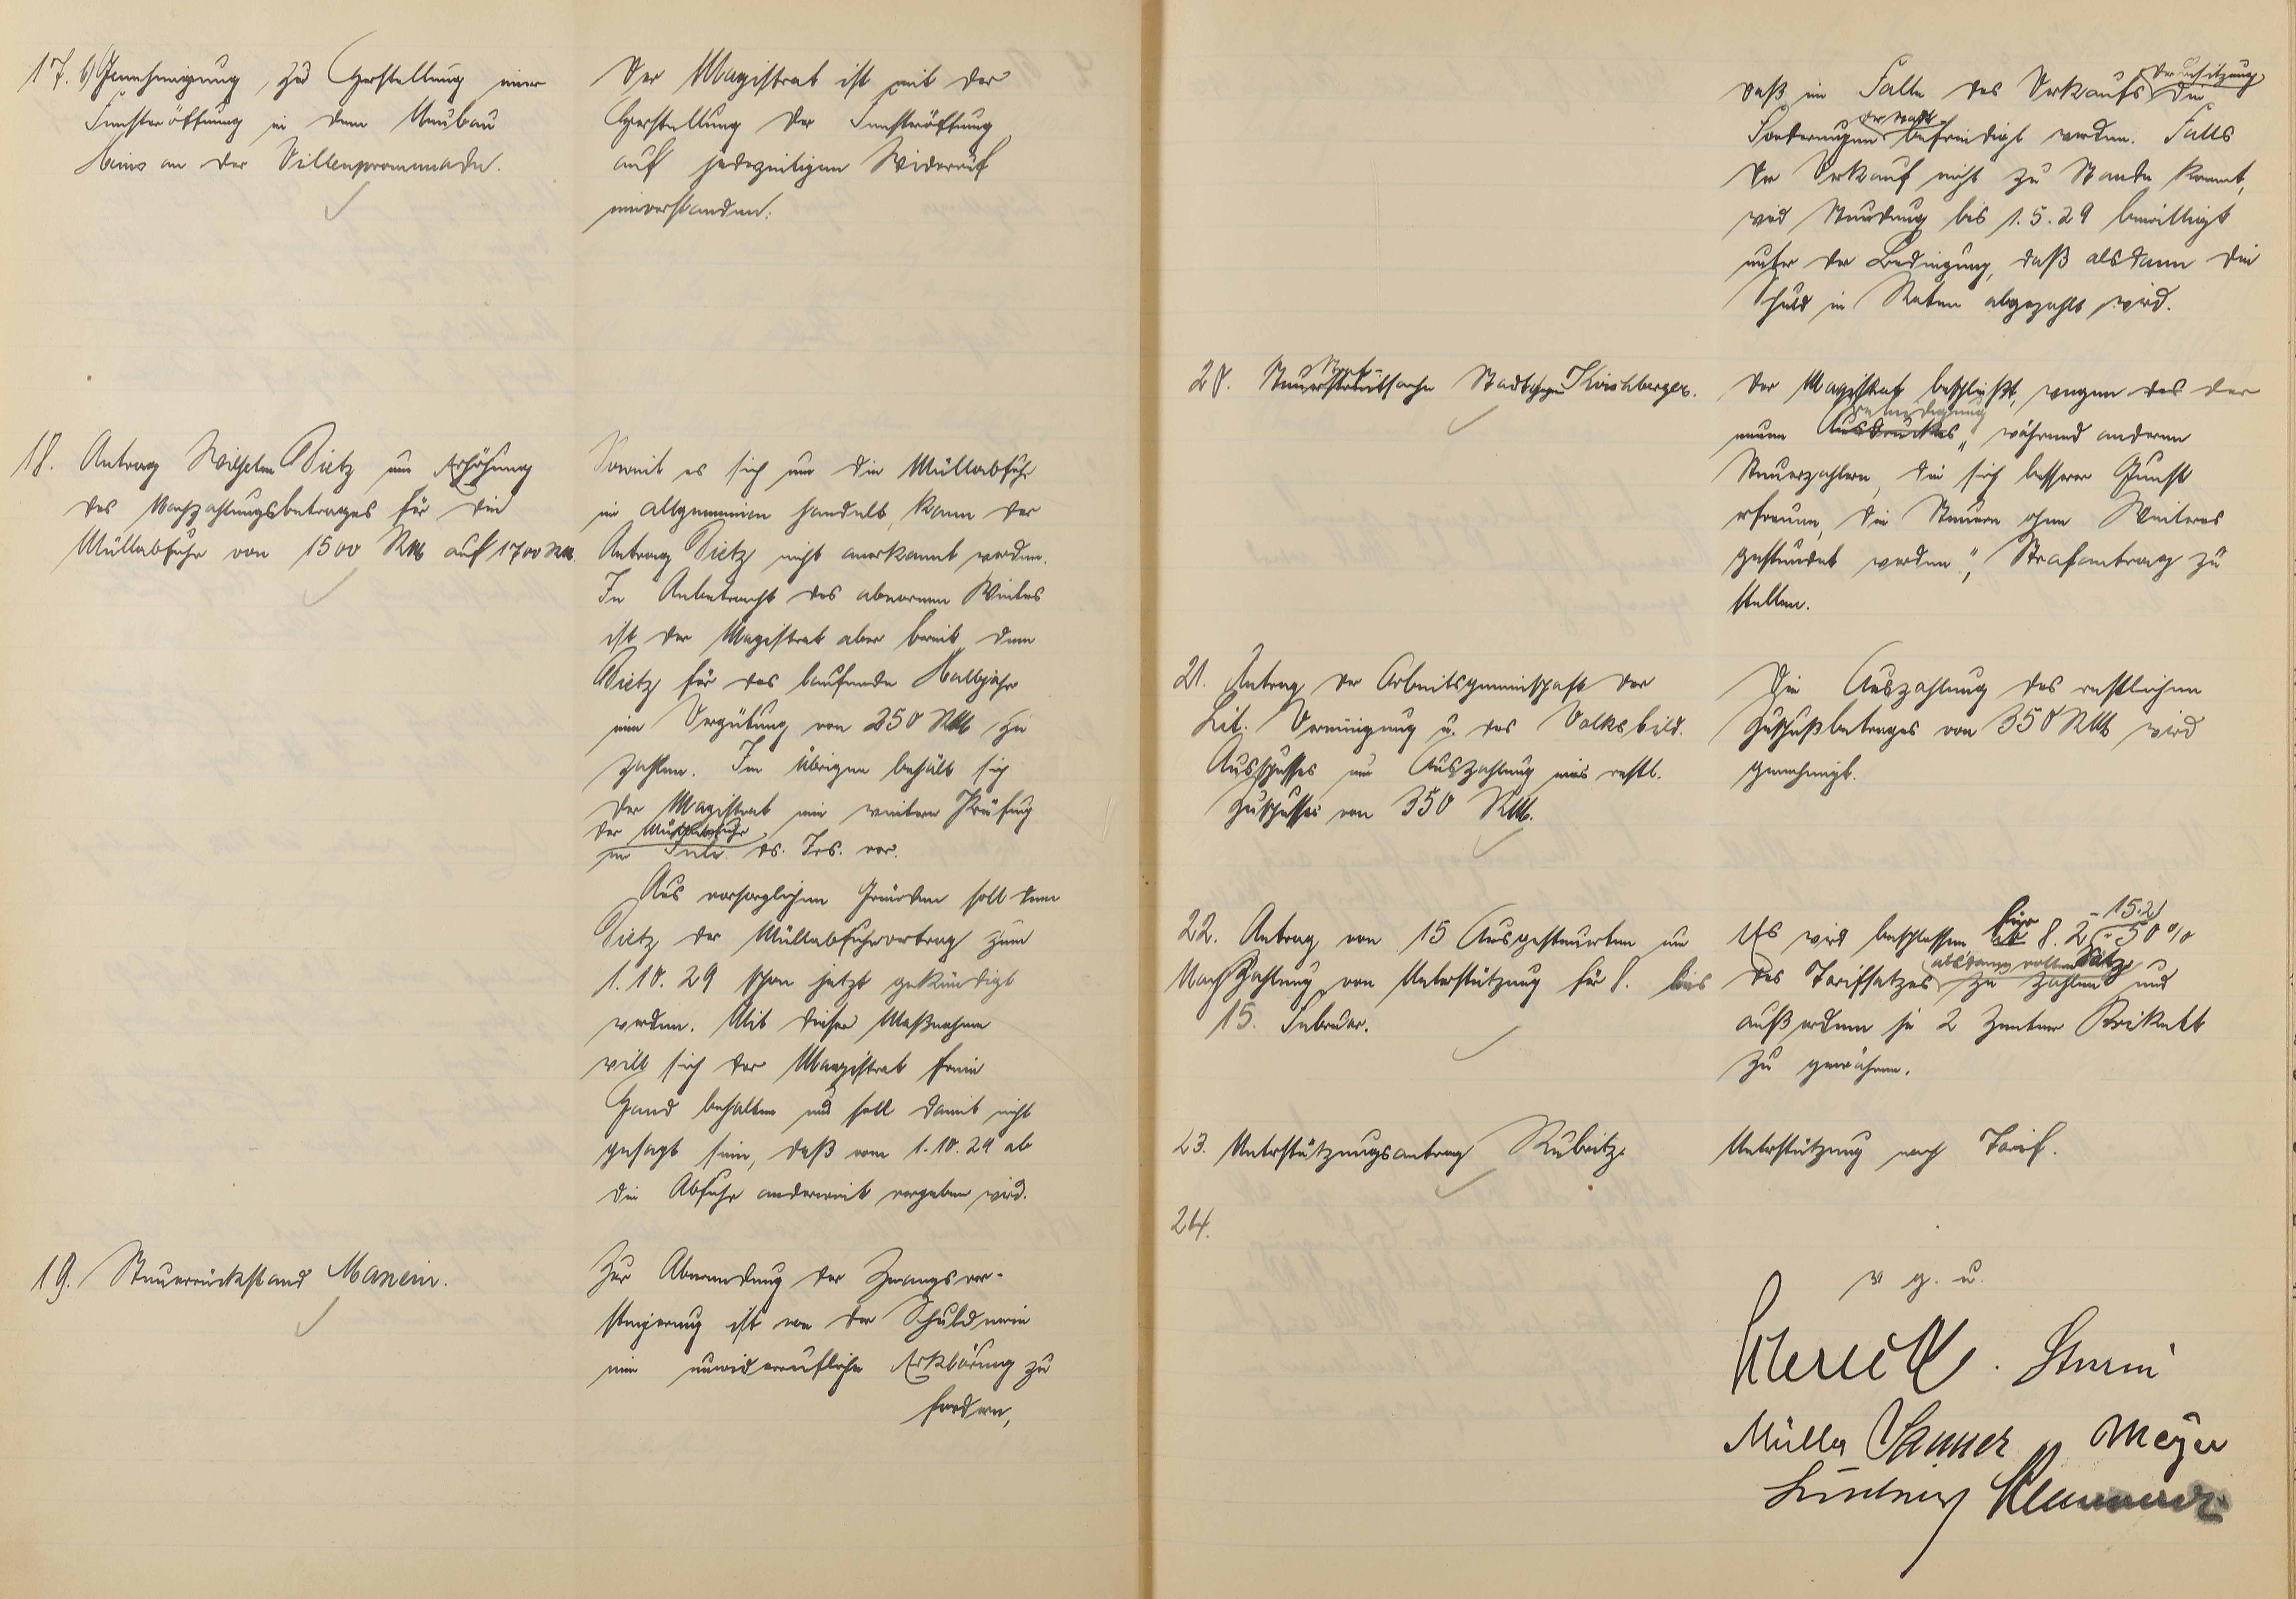 17. Genehmigung zur Herstellung einer
Fensteröffnung in dem Neubau
Heins an der Villenpromenade.
Der Magistrat ist mit der
Herstellung der Fensteröffnung
auf jederzeitigen Widerruf
einverstanden.
18. Antrag Wilhelm Dietz um Erhöhung
des Nachzahlungsbetrages für die
Müllabfuhr von 1500 RM auf 1700 RM.
Soweit es sich um die Müllabfuhr
im allgemeinen handelt, kann der
Antrag Dietz nicht anerkannt werden.
In Anbetracht des abnormen Winters
ist der Magistrat aber bereit dem
Dietz für das laufende Halbjahr
eine Vergütung von 250 RM zu
zahlen. Im übrigen behält sich
der Magistrat eine weitere Prüfung
der Müllabfuhr
im Juli ds. Jrs. vor.
Aus vorsorglichen Gründen soll dem
Dietz der Müllabfuhrvertrag zum
1.10.29 schon jetzt gekündigt
werden. Mit dieser Maßnahme
will sich der Magistrat freie
Hand behalten und soll damit nicht
gesagt sein, daß vom 1.10.29 ab
die Abfuhr anderweit vergeben wird.
19. Steuerrückstand Manein.
Zur Abwendung der Zwangsver-
steigerung ist von der Schuldnerin
eine unwiderrufliche Erklärung zu
fordern,
der Besitzung
daß im Falle des Verkaufs die
der Stadt
Forderungen befriedigt werden. Falls
der Verkauf nicht zu Stande kommt,
wird Stundung bis 1.5.29 bewilligt
unter der Bedingung, daß alsdann die
Schuld in Raten abgezahlt wird.
20. Straf-
sache Kirchberger.
Der Magistrat beschließt, wegen des der
neuen während anderen
Steuerzahlern, die sich besserer Gunst
erfreuen, die Steuern ohne Weiteres
gestundet werden", Strafantrag zu
stellen.
21. Antrag der Arbeitsgemeinschaft der
Lit. Vereinigung u. des Volksbild.
Ausschusses um Auszahlung eines restl.
Zuschusses von 350 RM.
Die Auszahlung des restlichen
Zuschußbetrages von 350 RM wird
genehmigt.
22. Antrag von 15 Ausgesteuerten um
Nachzahlung von Unterstützung für 8. bis
15. Februar.
Es wird beschlossen für 8.2. - 15.2. 50%
des Tarifsatzes alsdann vollen Satz zu zahlen und
außerdem je 2 Zentner Brikett
zu gewähren.
23. Unterstützungsantrag Rubritz.
Unterstützung nach Tarif.
24.
v. g. u.
Müller Meyer